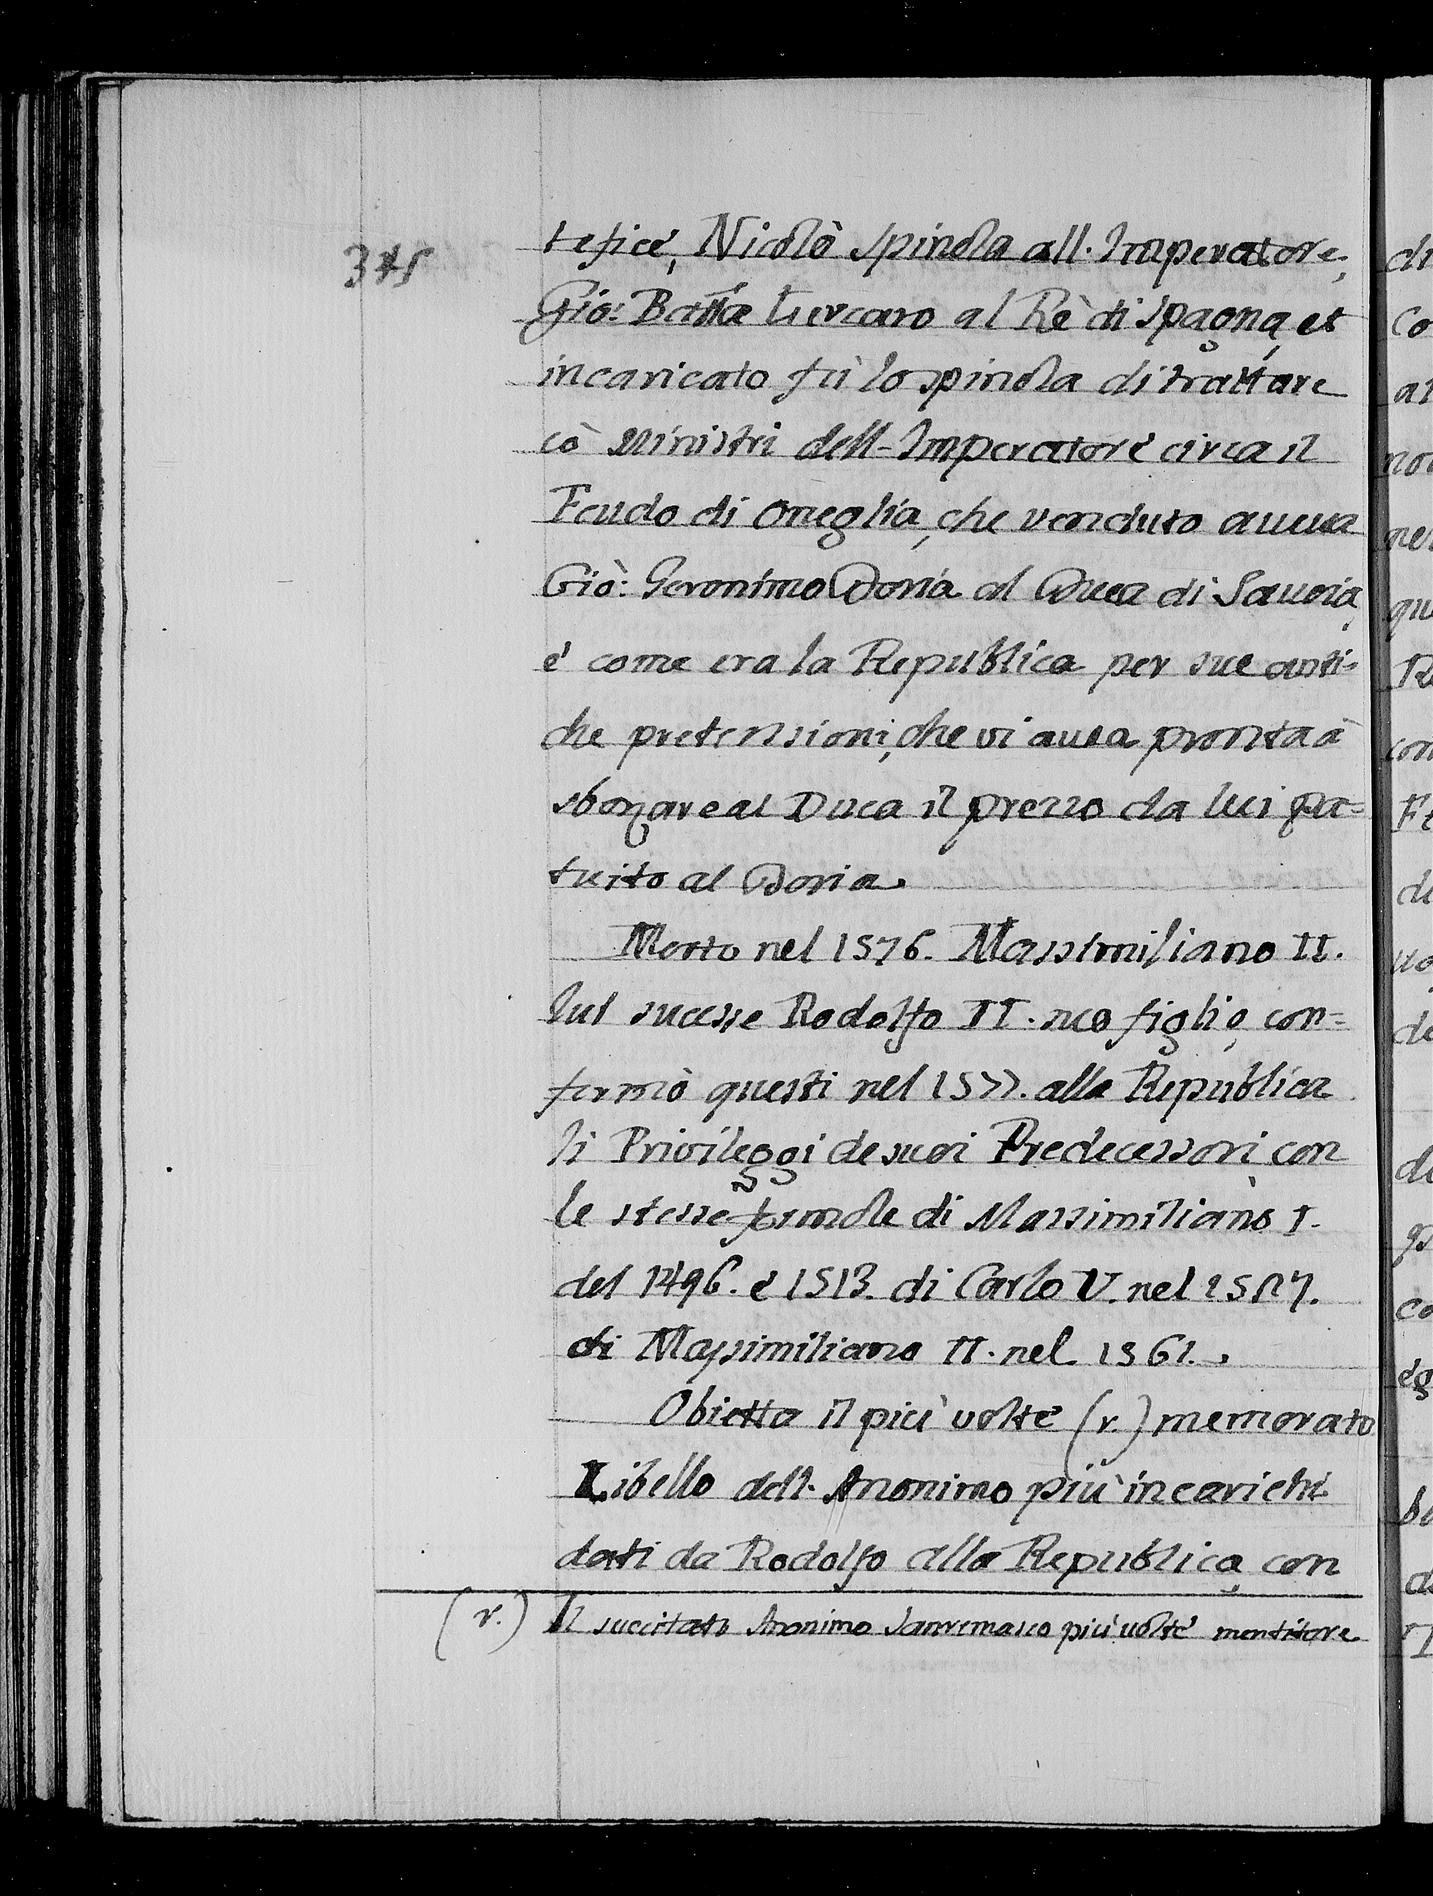 345
tefice, Nicolò Spinola all. Imperatore,
Gio: Batta Lercaro al Rè di Spagna, et
incaricato fù lo Spinola di trattare
cò Ministri dell-Imperatore circa il
Feudo di Oneglia, che venduto aueua
Giò: Geronimo Doria al Duca di Sauoia,
è come era la Republica per sue anti-
che pretensioni, che vi auea pronta à
sborzare al Duca il prezzo da lui pa=
tuito al Doria.
Morto nel 1576. Massimiliano II.
lui sucesse Rodolfo II. suo figlio, con=
fermò questi nel 1577. alla Republica
li Privileggi de suoi Predecessori con
le stesse formole di Massimiliano I.
del 1496. è 1513. di Carlo V. nel
di Massimiliano II. nel 1561.
Obietta il più volte (r.) memorato
Libello dell. Anonimo più incarichi
dati da Rodolfo alla Republica, con
(r.) Il succitato Anonimo Sanremasco più volte mentitore